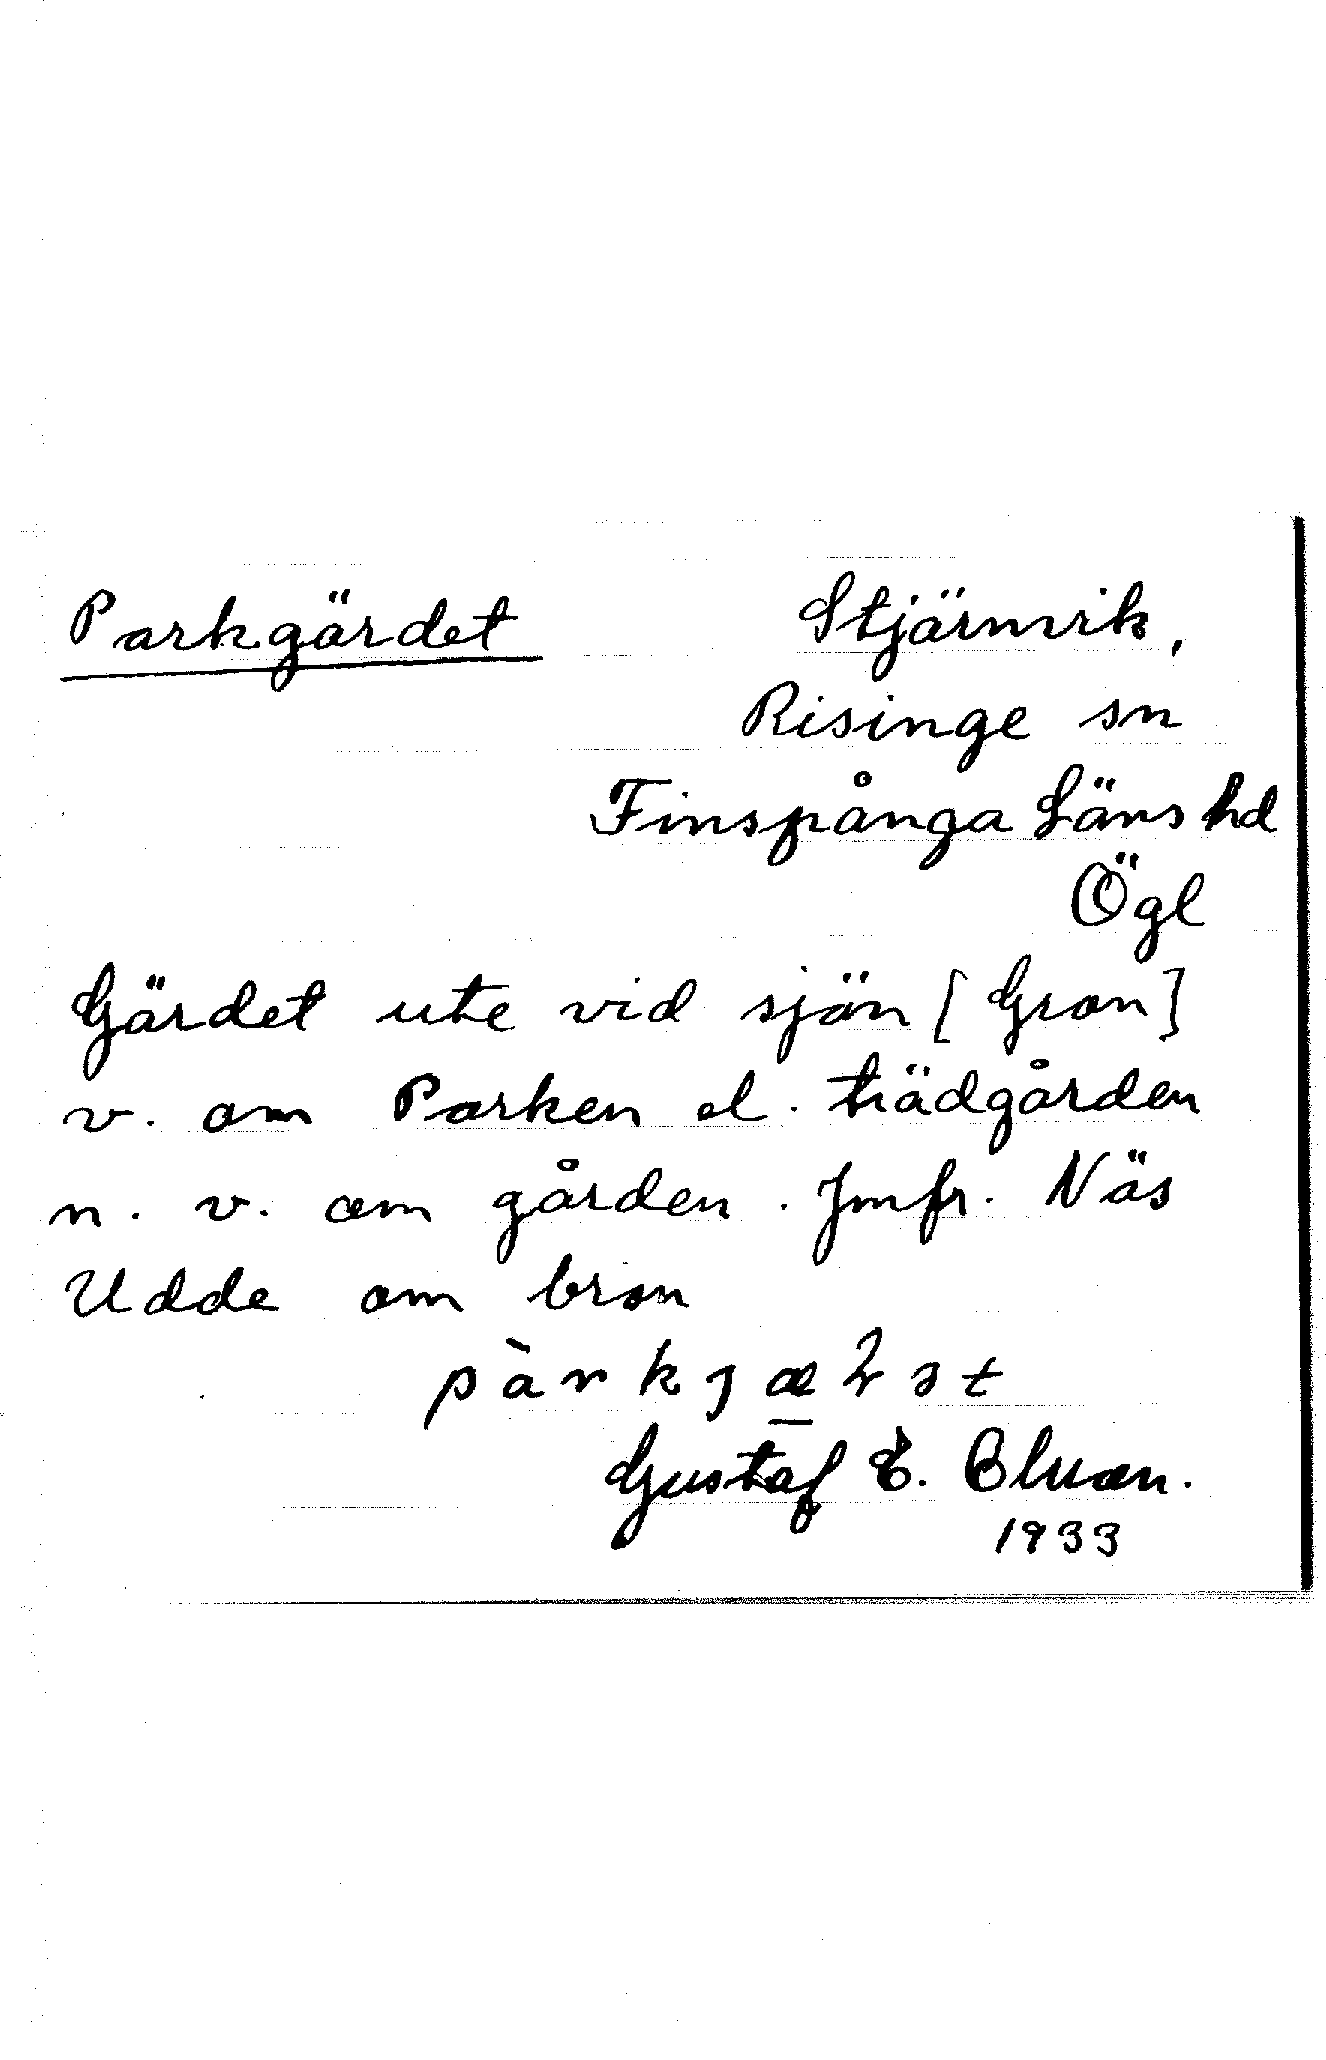 Parkgärdet Stjärnvik,
Risinge sn
Finspånga Läns hd
Ögl
Gärdet ute vid sjön [Gron]
v. om Parken el. trädgården
n. v. om gården. Jmfr. Näs
Udde om bron
Gustaf E. Bluan.
1933